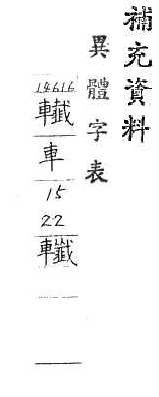 補充資料
異體字表
14616
車
15
22